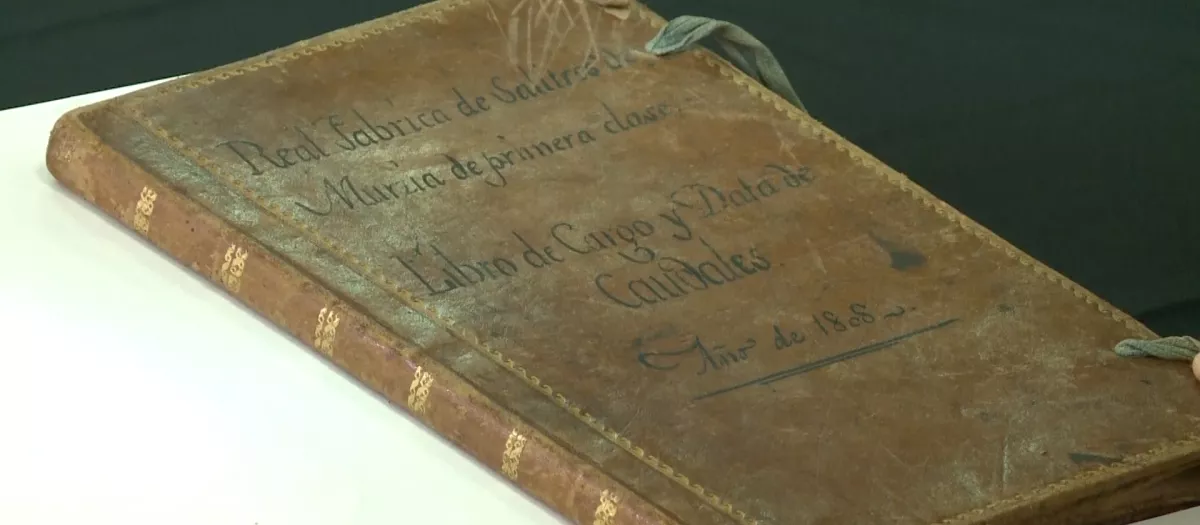 Real fabrica de Salitres de
Murzia de primera clase.
Libro de Cargo y Data de
Caudales.
Año de 1808